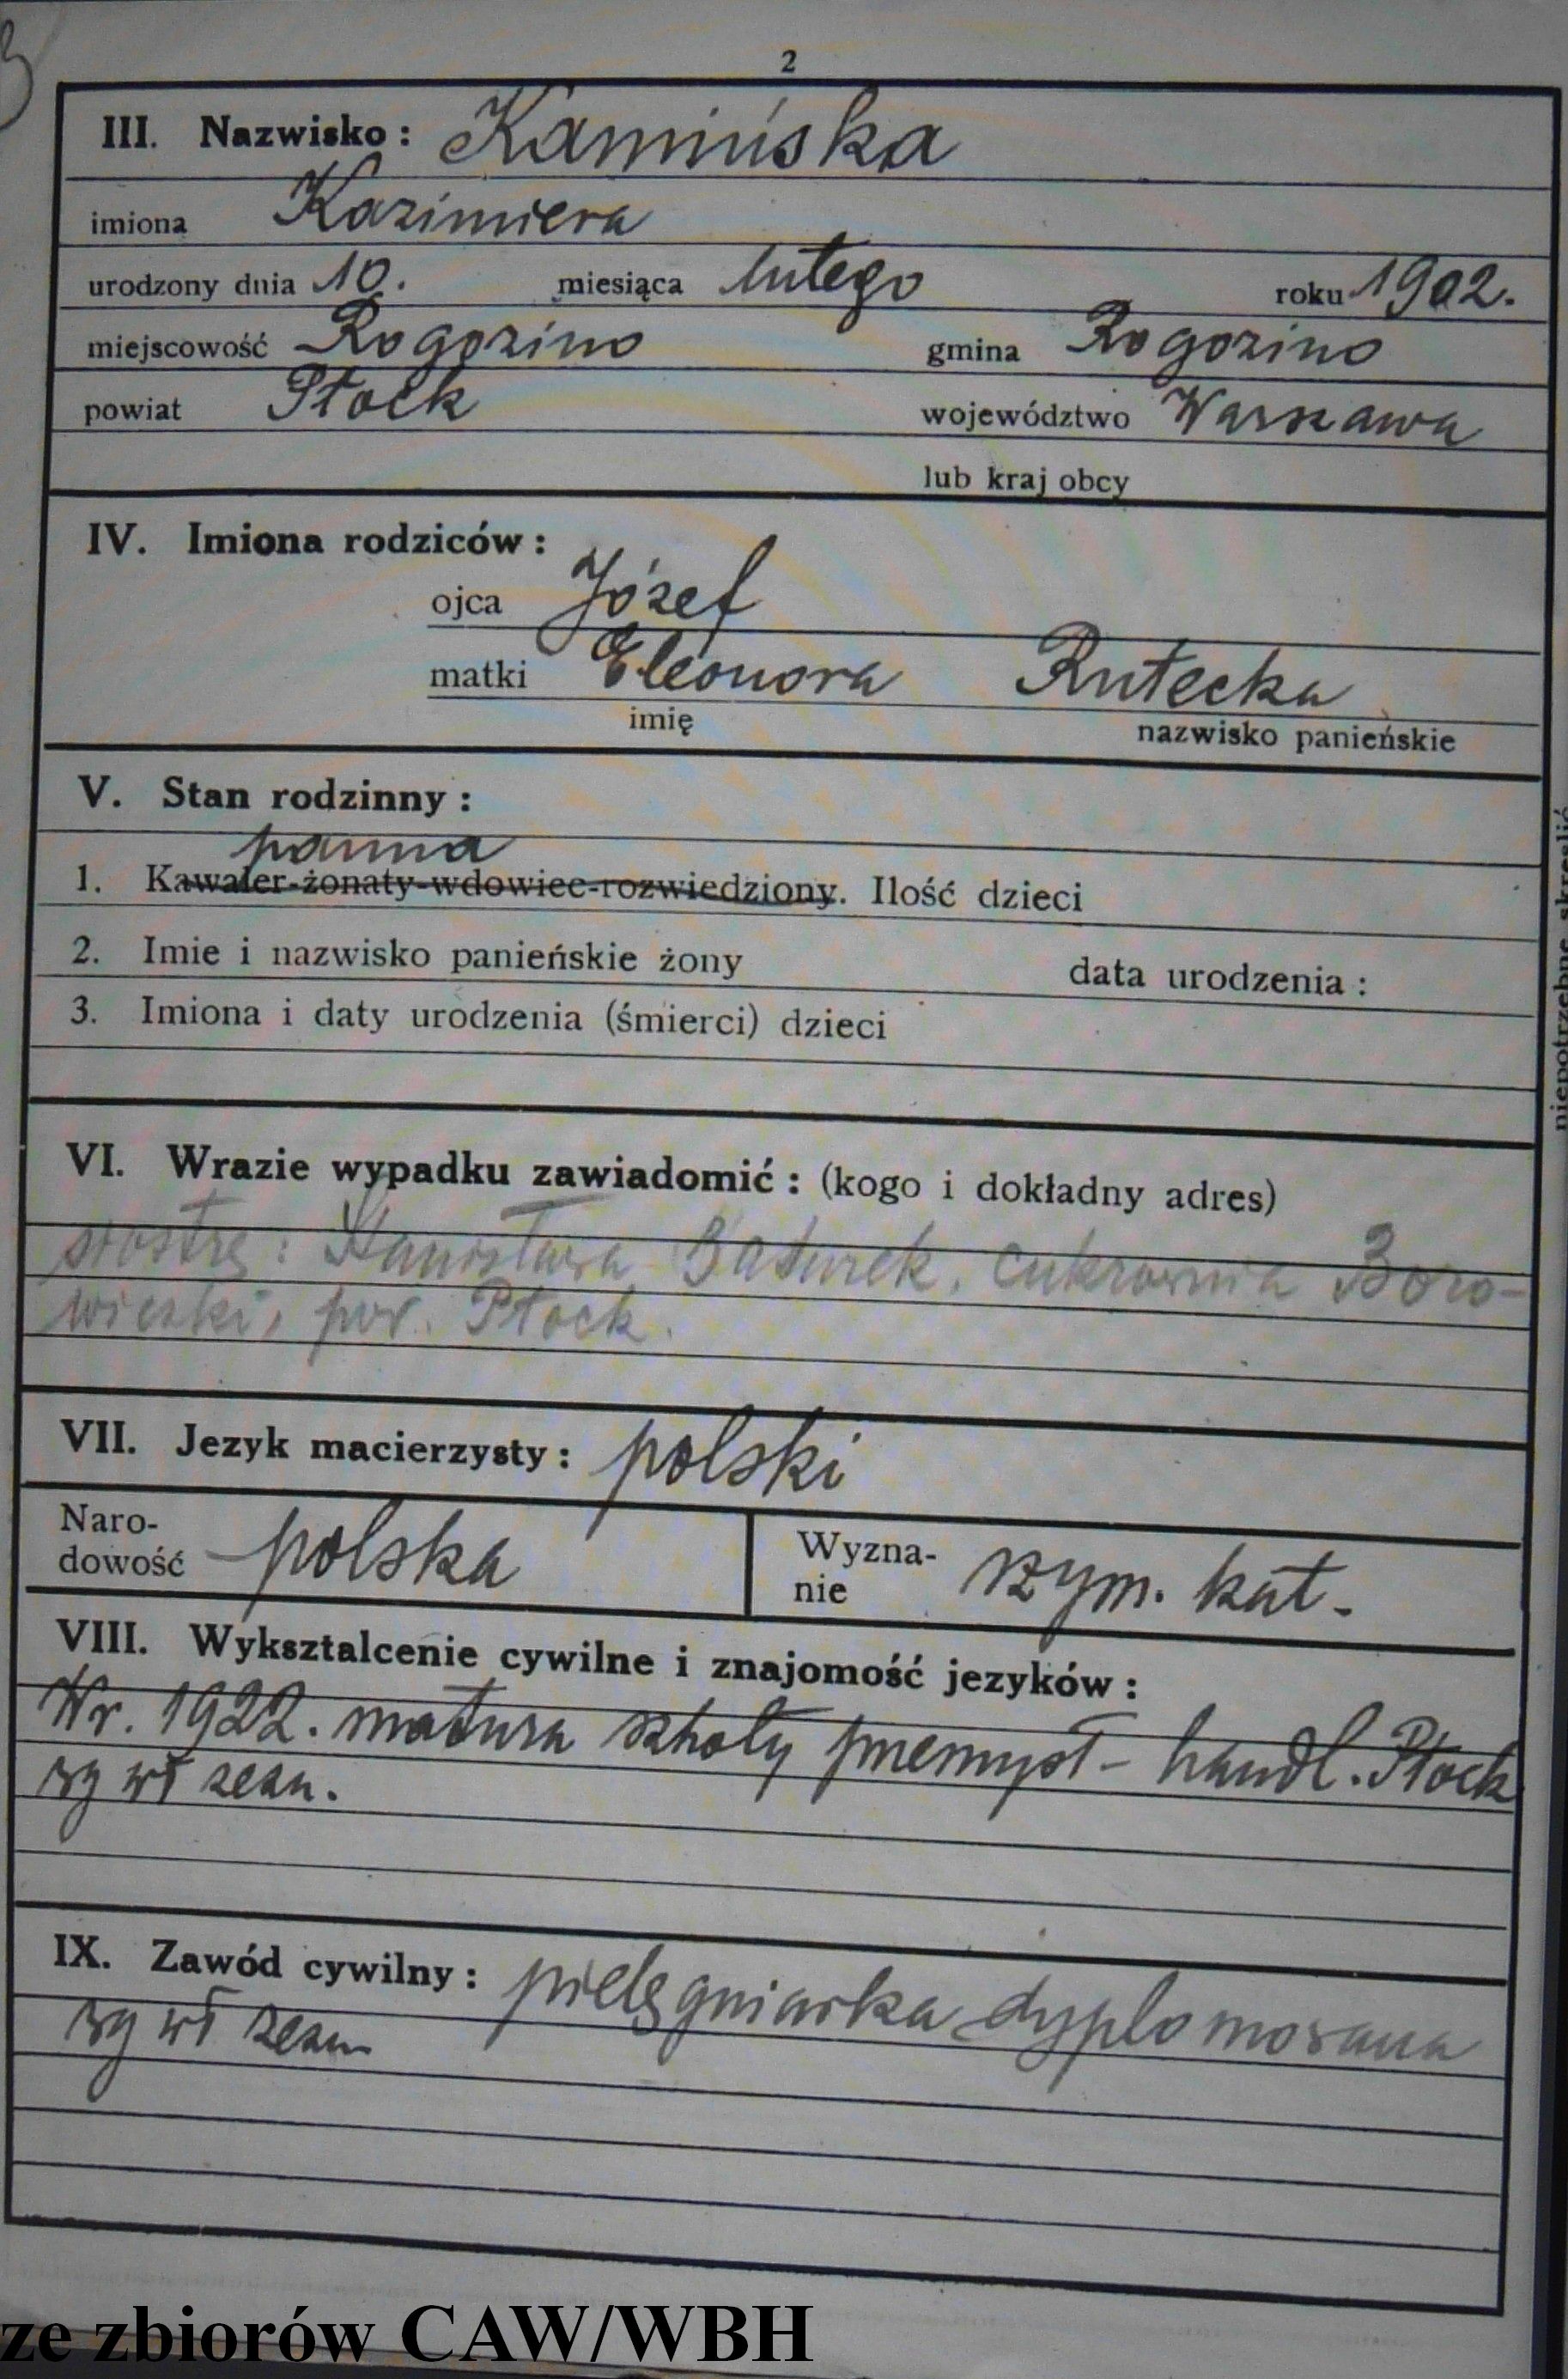 2
III. Nazwisko: Kamińska
imiona Kazimiera
urodzony dnia 10. miesiąca lutego roku 1902.
miejscowość Rogozino gmina Rogozino
powiat Płock województwo Warszawa
lub kraj obcy
IV. Imiona rodziców:
ojca Józef
matki Eleonora Rutecka
imię nazwisko panieńskie
V. Stan rodzinny:
panna
1. Kawaler-żonaty-wdowiec-rozwiedziony. Ilość dzieci
2. Imie i nazwisko panieńskie żony data urodzenia:
3. Imiona i daty urodzenia (śmierci) dzieci
niepotrzebne skreślić
VI. Wrazie wypadku zawiadomić: (kogo i dokładny adres)
siostrę: Stanisława Baturek, cukrownia Boro-
wiczki, pow. Płock.
VII. Jezyk macierzysty: polski
Naro-
dowość polska
Wyzna-
nie rzym. kat.
VIII. Wykształcenie cywilne i znajomość jezyków:
W r. 1922. matura szkoły przemysł-handl. Płock
wg wł zezn.
IX. Zawód cywilny: pielęgniarka dyplomowana
wg wł zezn.
ze zbiorów CAW/WBH